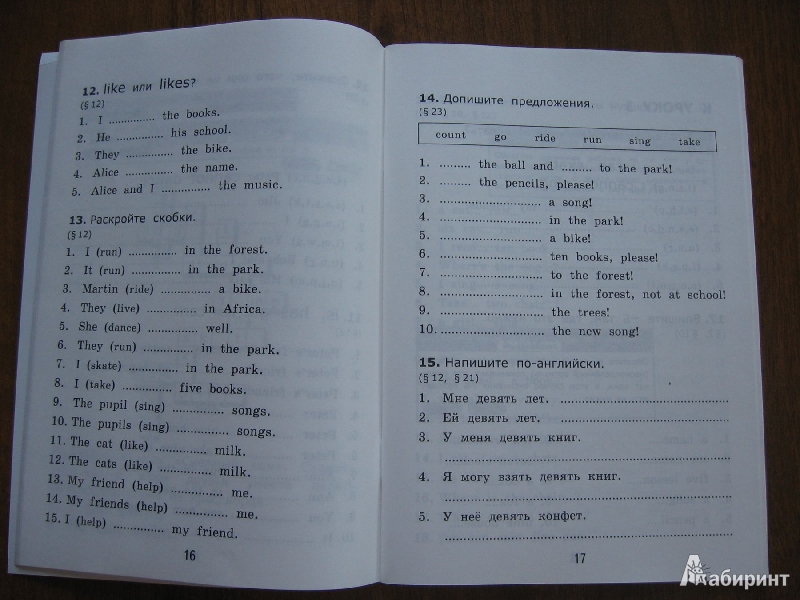 12. like или likes?
(§ 12)
1. I .............. the books.
2. He .............. his school.
3. They .............. the bike.
4. Alice .............. the name.
5. Alice and I .............. the music.
13. Раскройте скобки.
(§ 12)
1. I (run) .............. in the forest.
2. It (run) .............. in the park.
3. Martin (ride) .............. a bike.
4. They (live) .............. in Africa.
5. She (dance) .............. well.
6. They (run) .............. in the park.
7. I (skate) .............. in the park.
8. I (take) .............. five books.
9. The pupil (sing) .............. songs.
10. The pupils (sing) .............. songs.
11. The cat (like) .............. milk.
12. The cats (like) .............. milk.
13. My friend (help) .............. me.
14. My friends (help) .............. me.
15. I (help) .............. my friend.
16
14. Допишите предложения.
(§ 23)
count go ride run sing take
1. ......... the ball and ......... to the park!
2. ......... the pencils, please!
3. ............................ a song!
4. ............................ in the park!
5. ............................ a bike!
6. ............................ ten books, please!
7. ............................ to the forest!
8. ............................ in the forest, not at school!
9. ............................ the trees!
10. ............................ the new song!
15. Напишите по-английски.
(§ 12, § 21)
1. Мне девять лет. ........................................
2. Ей девять лет. ........................................
3. У меня девять книг.
................................................................
4. Я могу взять девять книг.
................................................................
5. У неё девять конфет.
................................................................
17
Лабиринт